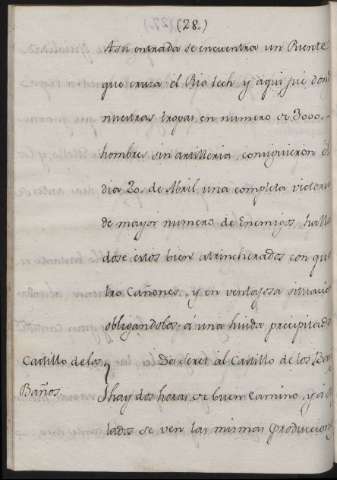 (28.)
A su entrada se encuentra un Puente
que cruza el Rio tech y aqui fué don
nuestras tropas en numero de 3000.
hombres sin artilleria, consiguieron el
dia 20. de Abril una completa victoria
de mayor numero de Enemigos, hall
dose estos bien atrincherados con qua
tro Cañones, y en ventajosa situacio
obligandolos a una huida precipitada
Castillo de los
Baños.
De Seret al Castillo de los Ba
hay dos horas de buen camino, y a
lados se ven las mismas produccion